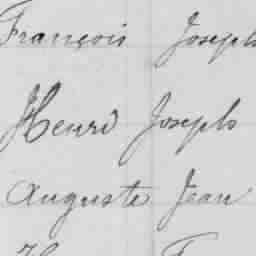 François Joseph
Henri Joseph
Auguste Jean